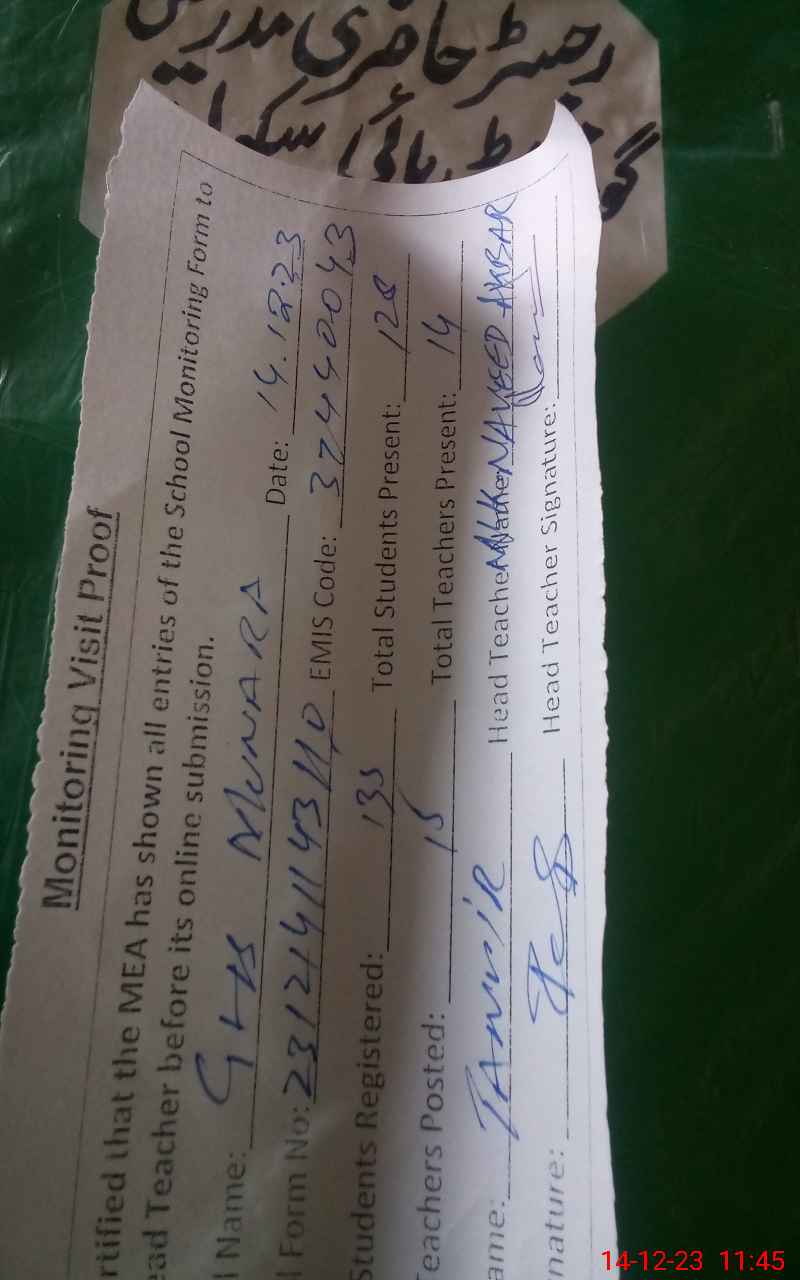 رجسٹر حاضری مدرسین
گورنمنٹ ہائی سکول
Monitoring Visit Proof
rtified that the MEA has shown all entries of the School Monitoring Form to
ead Teacher before its online submission.
l Name: GHS MUNARA Date: 14.12.23
l Form No: 2312141143110 EMIS Code: 37440043
Students Registered: 135 Total Students Present: 128
Teachers Posted: 15 Total Teachers Present: 14
ame: TANVIR Head Teacher NAVEED AKBAR
nature: Head Teacher Signature:
14-12-23 11:45